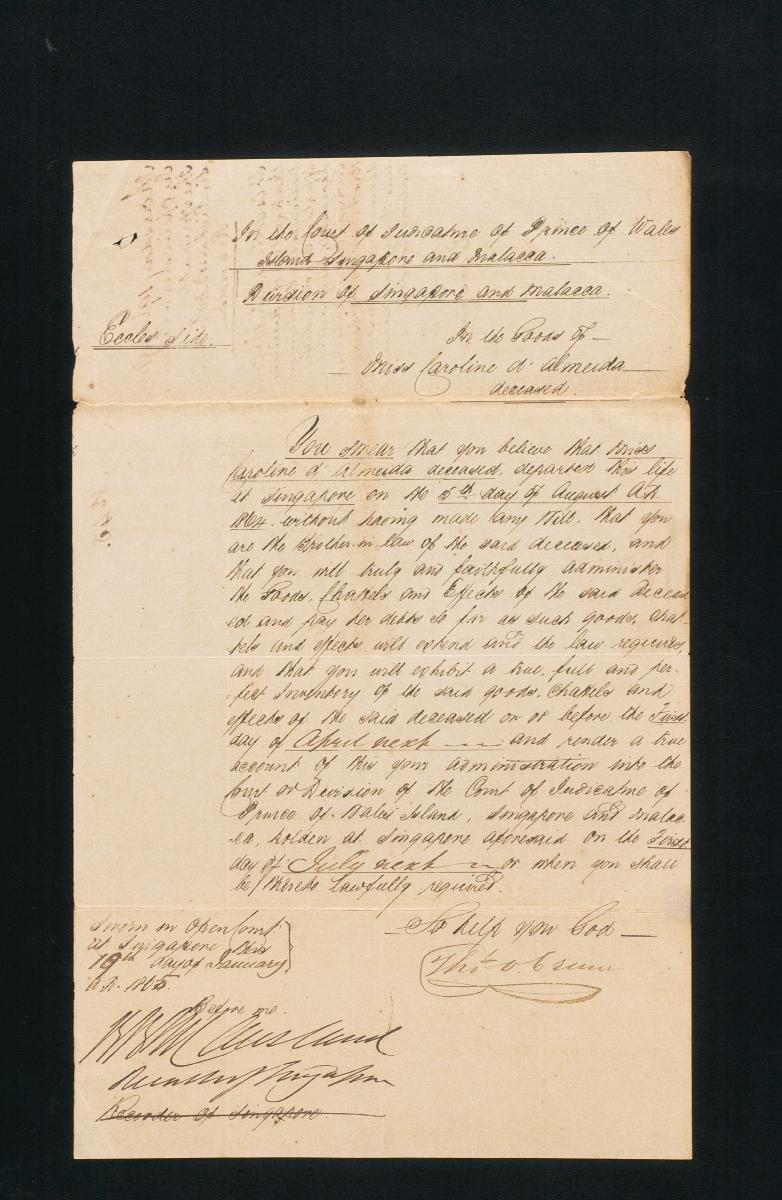 In the Court of Judicature of Prince of Wales
Island Singapore and Malacca.
Division of Singapore and Malacca.
Eccles. Side.
In the Goods of
Miss Caroline d'Almeida
deceased.
You swear that you believe that Miss
Caroline d'Almeida deceased, departed this life
at Singapore on the 5th day of August A.D.
1864. without having made any Will, that you
are the Brother-in-law of the said deceased, and
that you will truly and faithfully administer
the Goods, Chattels and Effects of the said Deceas
ed and pay her debts so far as such goods, chat-
tels and effects will extend and the law requires,
and that you will exhibit a true, full and per-
fect Inventory of the said goods, chattels and
effects of the said deceased on or before the First
day of April next and render a true
account of this your administration into the
Court or Division of the Court of Judicature of
Prince of Wales Island, Singapore and Malac-
ca, holden at Singapore aforesaid on the First
day of July next or when you shall
be thereto lawfully required.
So help you God
Sworn in Open Court
at Singapore this
19th day of January
A.D. 1865.
Thos. O. Crane
Before me.
R B McCausland
Recorder of Singapore
Recorder of Singapore.